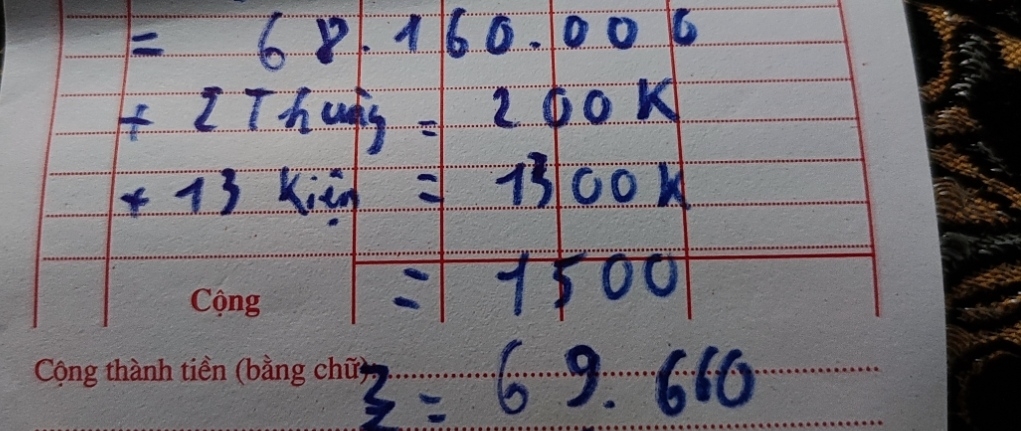 = 68.160.000
+ 2 Thùng = 200K
+ 13 Kiện = 1300K
Cộng = 1500
Cộng thành tiền (bằng chữ):
Σ = 69.660